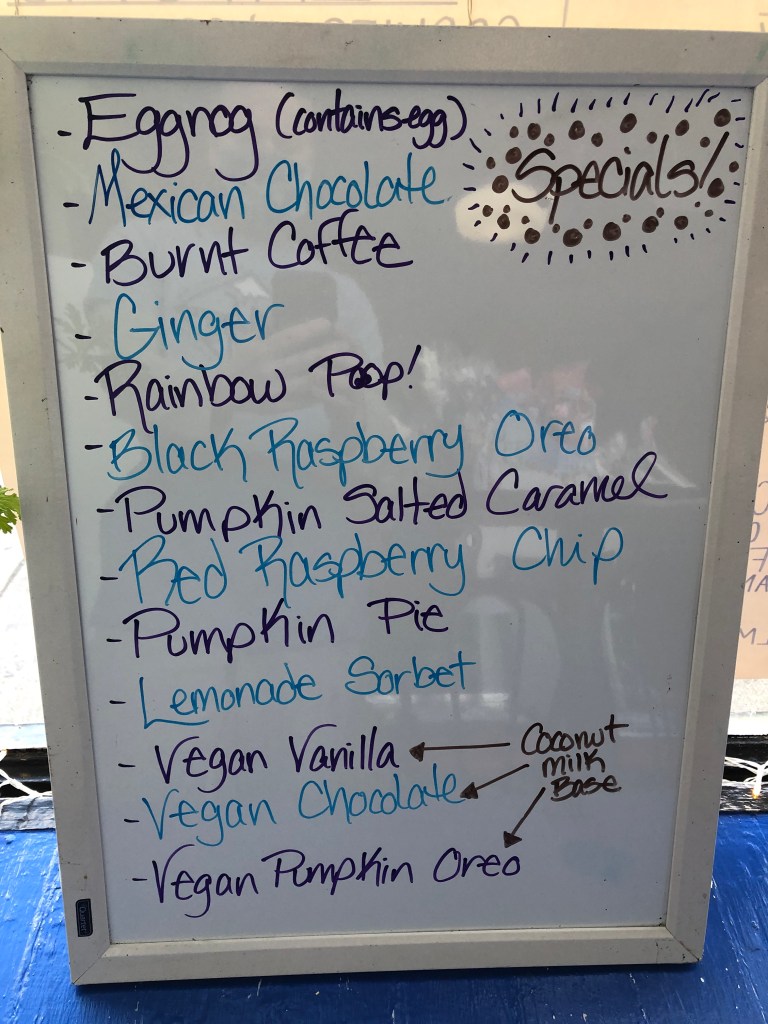 Specials!
- Eggnog (contains egg)
- Mexican Chocolate
- Burnt Coffee
- Ginger
- Rainbow Poop!
- Black Raspberry Oreo
- Pumpkin Salted Caramel
- Red Raspberry Chip
- Pumpkin Pie
- Lemonade Sorbet
- Vegan Vanilla
- Vegan Chocolate
- Vegan Pumpkin Oreo
Coconut
milk
Base